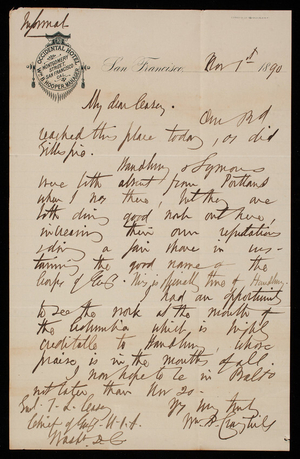 Informal
OCCIDENTAL HOTEL
MONTGOMERY STREET
SAN FRANCISCO
CAL.
S.B. HOOPER, MANAGER
San Francisco, Nov 1st 1890
My dear Casey.
Our Bd
reached this place today, as did
Gillespie.
Handbury & Symons
were both absent from Portland
when I was there, but they are
both doing good work out here,
increasing their own reputations
& doing a fair share in sus-
taining the good name of the
Corps of Engs. This is specially true of Handbury.
I had an opportunity
to see the work at the mouth of
the Columbia which is highly
creditable to Handbury, whose
praise is in the mouths of all.
I now hope to be in Balto
not later than Nov 20-
Yrs very truly
Wm. P. Craighill
Gnl. T. L. Casey
Chief of Engs U.S.A.
Washt. D.C